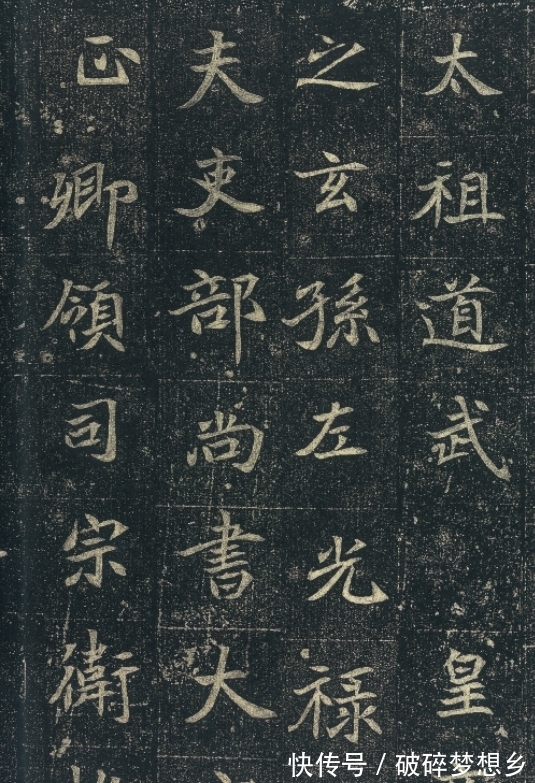 太祖道武皇
之玄孫左光禄
夫吏部尚書大
正卿領司宗衛
快传号 / 破碎梦想乡